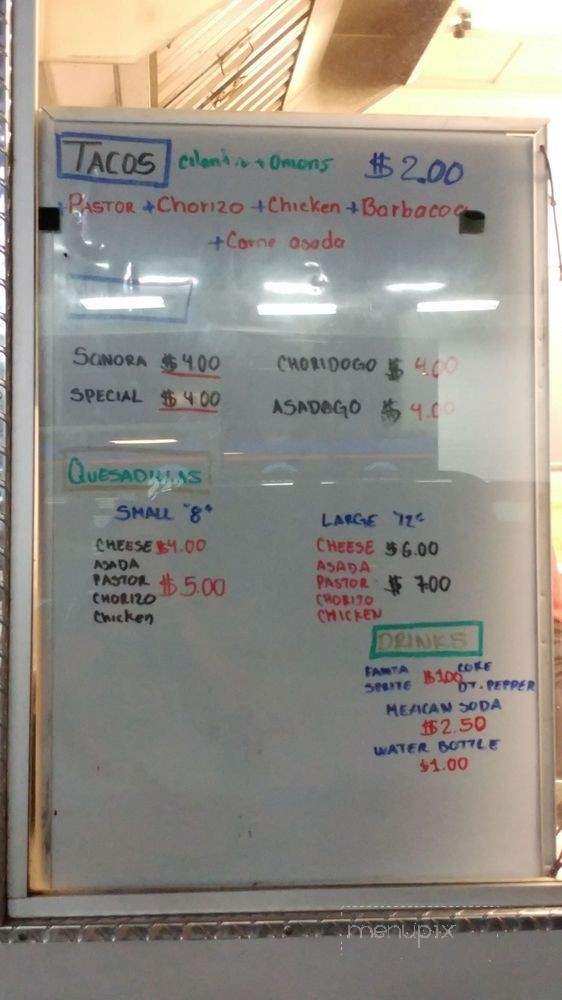 TACOS Cilantro + Onions $2.00
+PASTOR +Chorizo +Chicken +Barbacoa
+Carne asada
SONORA $4.00 CHORIDOGO $4.00
SPECIAL $4.00 ASADOGO $4.00
QUESADILLAS
SMALL "8" LARGE "12"
CHEESE $4.00 CHEESE $6.00
ASADA ASADA
PASTOR $5.00 PASTOR $7.00
CHORIZO CHORIZO
Chicken CHICKEN
DRINKS
FANTA $1.00 COKE
SPRITE DT. PEPPER
MEXICAN SODA
$2.50
WATER BOTTLE
$1.00
menupix